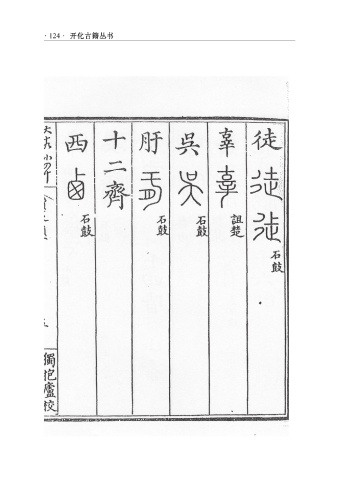 · 124 · 开化古籍丛书
徒 石鼓
辜 詛楚
吳 石鼓
盱 石鼓
十二齊
西 石鼓
獨抱廬校